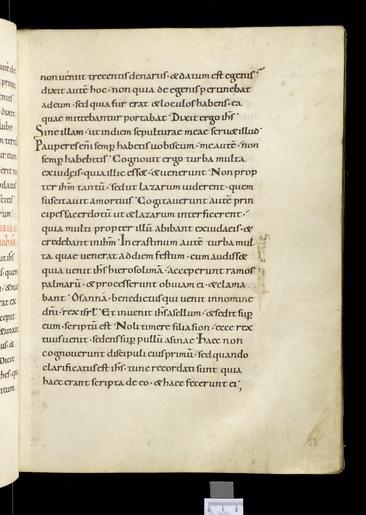 non veniit trecentis denariis · & datum est egenis ·
dixit autē hoc · non quia de egenis pertinebat
ad eum · sed quia fur erat & loculos habens · ea
quae mittebantur portabat · Dixit ergo ihs
Sine illam · ut in diem sepulturae meae seru& illud
Pauperes eni semp habetis uobiscum · me autē · non
semp habebitis · Cognouit ergo turba multa
ex iudeis · quia illic esse & uenerunt · Non prop
ter ihm tantū · sed ut lazarum uiderent · quem
suscitauit a mortuis · Cogitauerunt autē prin
cipes sacerdotū ut & lazarum interficerent ·
quia multi propter illū abibant ex iudaeis · &
credebant in ihm · In crastinum autē turba mul
ta quae uenerat ad diem festum · cum audisse
quia uenit ihs hierosolima · acceperunt ramos
palmarū · & processerunt obuiam ei · & clama
bant · Osanna · benedictus qui uenit in nomine
dni · rex isrl · Et inuenit ihs asellum · & sedit sup
eum · sicut scriptū est · Noli timere filia sion · ecce rex
tuus uenit · sedens sup pullū asinae · Haec non
cognouerunt discipuli eius primū · sed quando
clarificatus est ihs · tunc recordati sunt quia
haec erant scripta de eo · & haec fecerunt ei ;
53